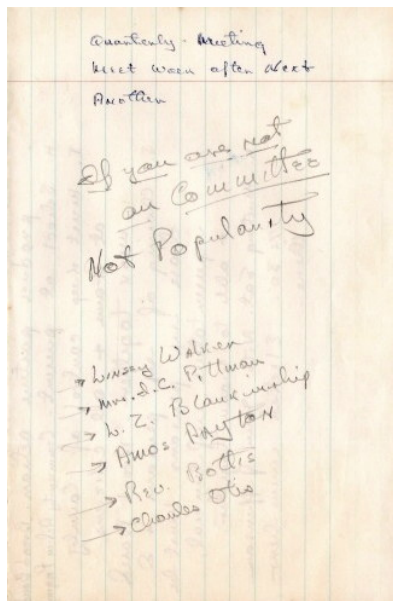 Quarterly - Meeting
Meet Week after Next
Another
If you are not
on Committee
Not Popularity
→ Linsey Walker
→ Mrs. S. C. Pittman
→ L. Z. Blankinship
→ Amos Payton
→ Rev. Bottis
→ Charles Otis